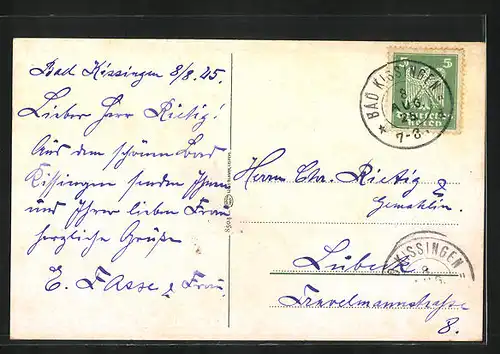 Bad Kissingen 8/8.25.
Lieber Herr Rietig!
Aus dem schönen Bad
Kissingen senden Ihnen
und Ihrer lieben Frau
herzliche Grüße
E. Fasse & Frau.
5 5
BAD KISSINGEN
8
AUG.
25
* 7-8.
Herrn Chr. Rietig &
Gemahlin.
Lübeck
Travelmannstraße
8.
KISSINGEN
8